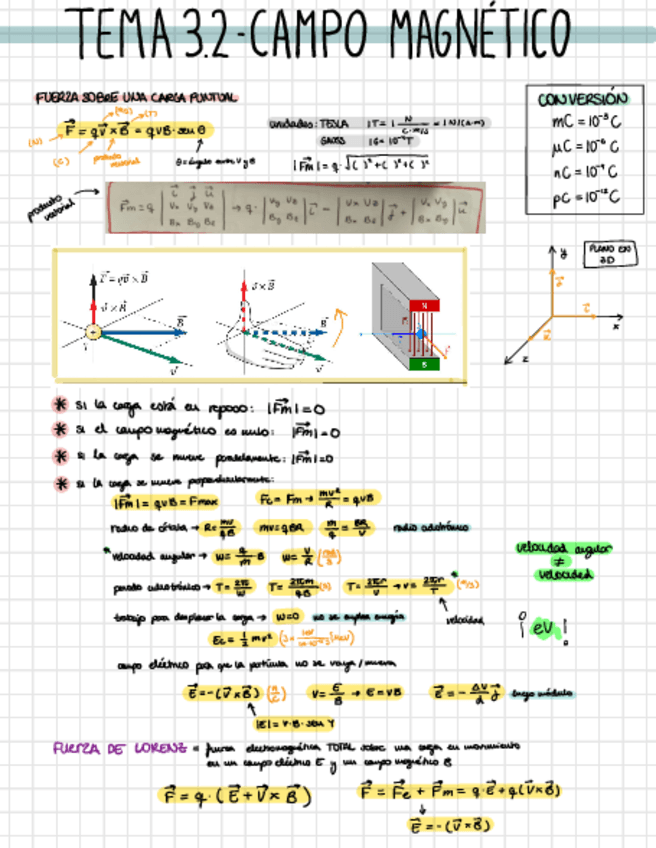 TEMA 3.2-CAMPO MAGNÉTICO
FUERZA SOBRE UNA CARGA PUNTUAL
(m/s) (T)
F⃗ = qv⃗ × B⃗ = qvB·senθ
(N)
(C)
producto vectorial
θ=ángulo entre v y B
unidades: TESLA 1T = 1 N/(C·m/s) = 1N/(A·m)
GAUSS 1G = 10⁻⁴T
|F⃗m| = q·√(( )²+( )²+( )²)
CONVERSIÓN
mC = 10⁻³ C
μC = 10⁻⁶ C
nC = 10⁻⁹ C
pC = 10⁻¹² C
producto vectorial
F⃗m = q | i⃗ j⃗ k⃗ | Vx Vy Vz | Bx By Bz | → q· | Vy Vz | By Bz | i⃗ - | Vx Vz | Bx Bz | j⃗ + | Vx Vy | Bx By | k⃗
F⃗ = qv⃗ × B⃗
v⃗ × B⃗
+
B⃗
v⃗
v⃗ × B⃗
B⃗
v⃗
N
S
PLANO EN 3D
y
x
z
* si la carga está en reposo: |F⃗m| = 0
* si el campo magnético es nulo: |F⃗m| = 0
* si la carga se mueve paralelamente: |F⃗m| = 0
* si la carga se mueve perpendicularmente:
|F⃗m| = qvB = Fmax Fc = Fm → mv²/R = qvB
radio de órbita → R = mv/qB mv = qBR m/q = BR/v radio ciclotrónico
* velocidad angular → w = q/m·B w = v/R
velocidad angular
≠
velocidad
periodo ciclotrónico → T = 2π/w T = 2πm/qB (s) T = 2πr/v → v = 2πr/T * (m/s)
velocidad
trabajo para desplazar la carga → W=0 no se emplea energía
Ec = 1/2 mv²
¡ eV !
campo eléctrico para que la partícula no se vaya/mueva
E⃗ = -(v⃗×B⃗) v = E/B → E = vB E⃗ = - ΔV/d j⃗ luego módulo
|E| = v·B·sen
FUERZA DE LORENZ = fuerza electromagnética TOTAL sobre una carga en movimiento
en un campo eléctrico E y un campo magnético B
F⃗ = q·(E⃗ + v⃗ × B⃗) F⃗ = F⃗e + F⃗m = q·E⃗ + q(v⃗×B⃗)
E⃗ = -(v⃗×B⃗)